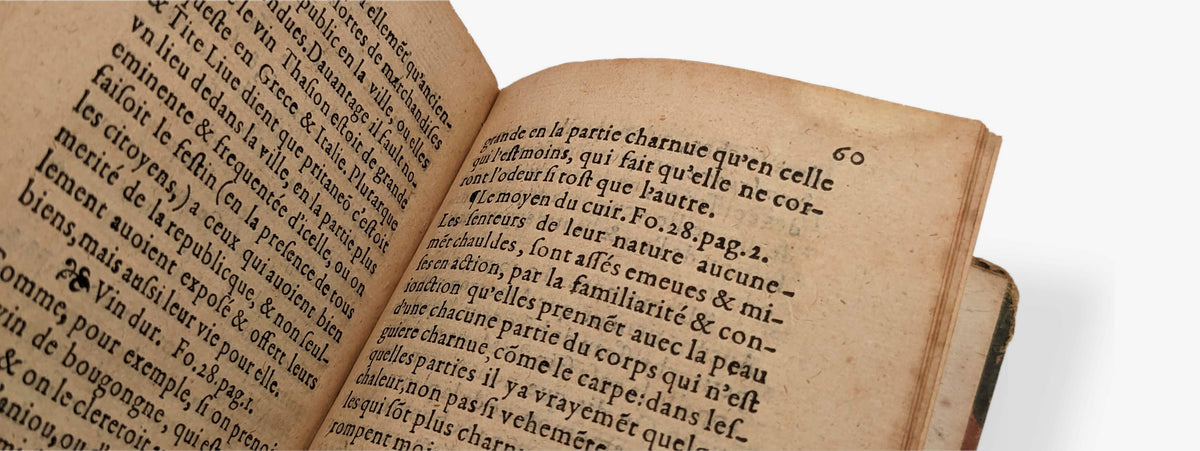 ellemẽt qu'ancien-
sortes de marchandises
public en la ville, ou elles
dues. Dauantage il fault no-
le vin Thasion estoit de grande
queste en Grece & Italie. Plutarque
& Tite Liue dient que pritaneo c'estoit
vn lieu dedans la ville, en la partie plus
eminente & frequentée d'icelle, ou on
faiſoit le feſtin (en la preſence de tous
les citoyens,) a ceux qui auoient bien
merité de la republicque, & non ſeul-
lement auoient expoſé & offert leurs
biens, mais auſsi leur vie pour elle.
Vin dur. Fo. 28. pag. 1.
Comme, pour exemple, ſi on prenoi
vin de bougongne, qui eſt
& on le cleretoit a
aniou, ou d'
60
grande en la partie charnue qu'en celle
qui l'eſt moins, qui fait qu'elle ne cor-
ront l'odeur ſi toſt que l'autre.
¶Le moyen du cuir. Fo. 28. pag. 2.
Les ſenteurs de leur nature aucune-
mẽt chauldes, ſont aſſés emeues & mi-
ſes en action, par la familiarité & con-
ionction qu'elles prennẽt auec la peau
d'une chacune partie du corps qui n'eſt
guiere charnue, cõme le carpe: dans leſ-
quelles parties il ya vrayemẽt quelq
chaleur, non pas ſi vehemẽte
les qui ſõt plus charnu
rompent moi